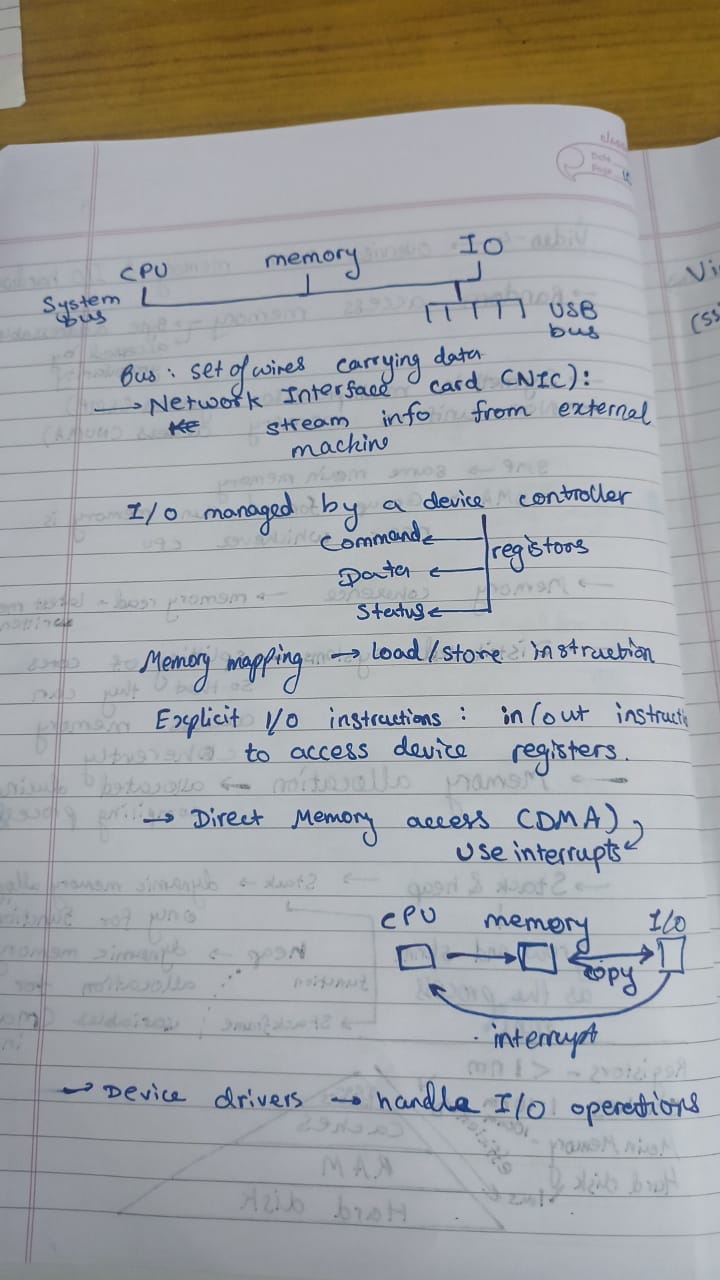 CPU memory IO
System bus
USB bus
Bus : set of wires carrying data
→ Network Interface card (NIC):
stream info from external
machine
I/O managed by a device controller
Command
registors
Data
Status
Memory mapping → load/store instruction
Explicit I/O instructions : in/out
to access device registers.
→ Direct Memory access (DMA)
Use interrupts
CPU memory I/O
copy
interrupt
→ Device drivers → handle I/O operations